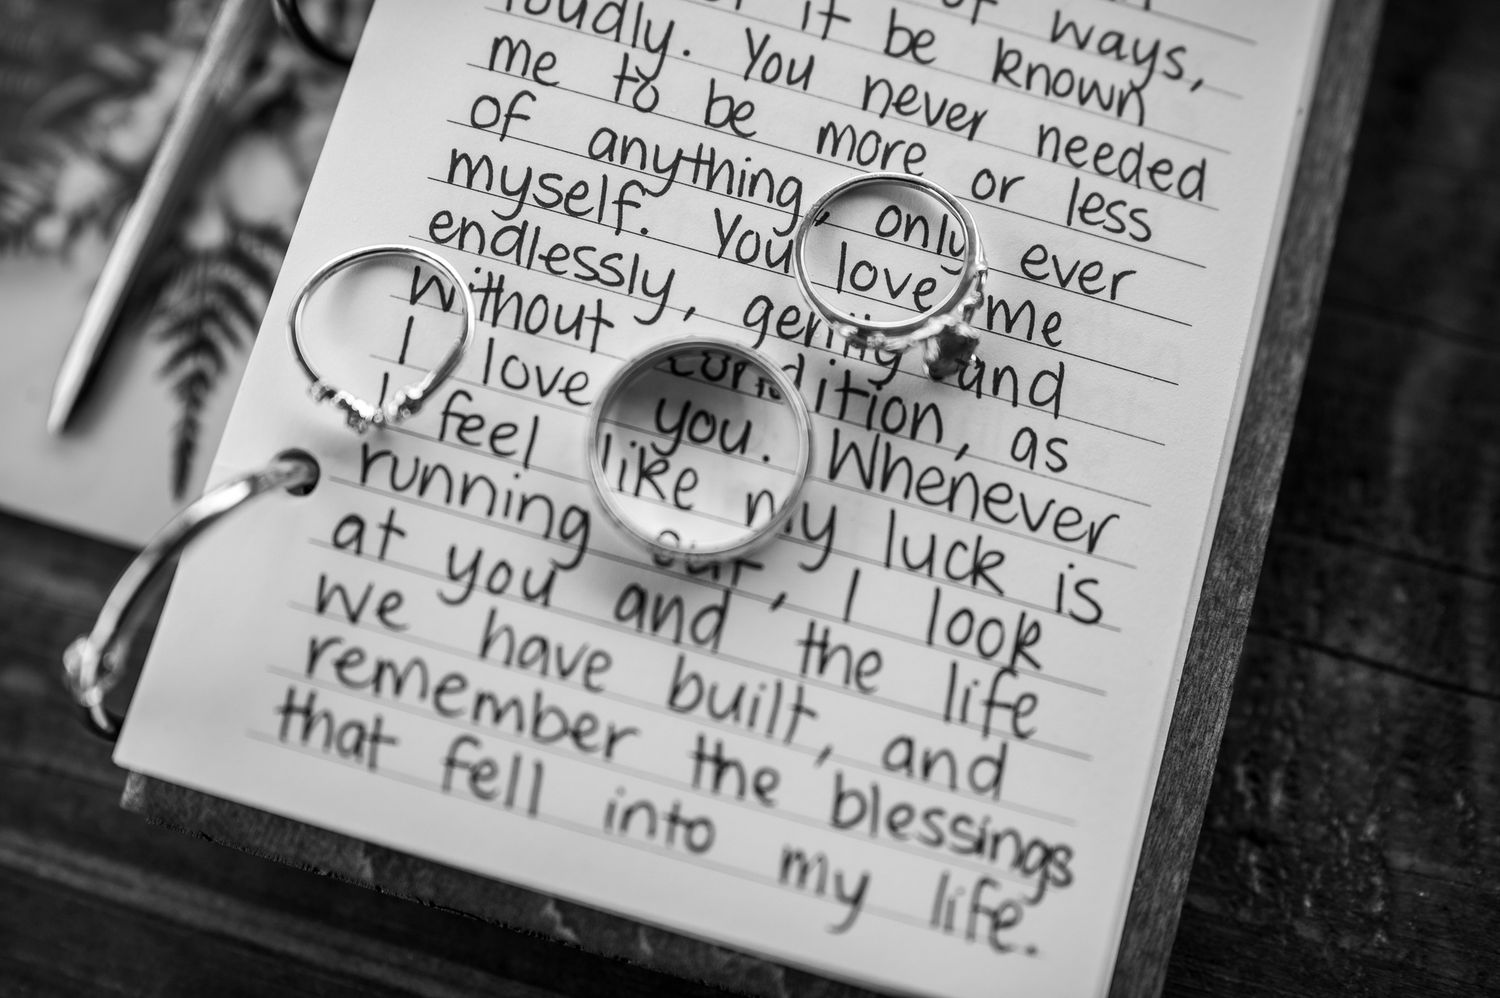 of ways,
it be known
loudly. You never needed
me to be more or less
of anything, only ever
myself. You love me
endlessly, gently and
without condition, as
I love you. Whenever
I feel like my luck is
running out, I look
at you and the life
we have built, and
remember the blessings
that fell into my life.